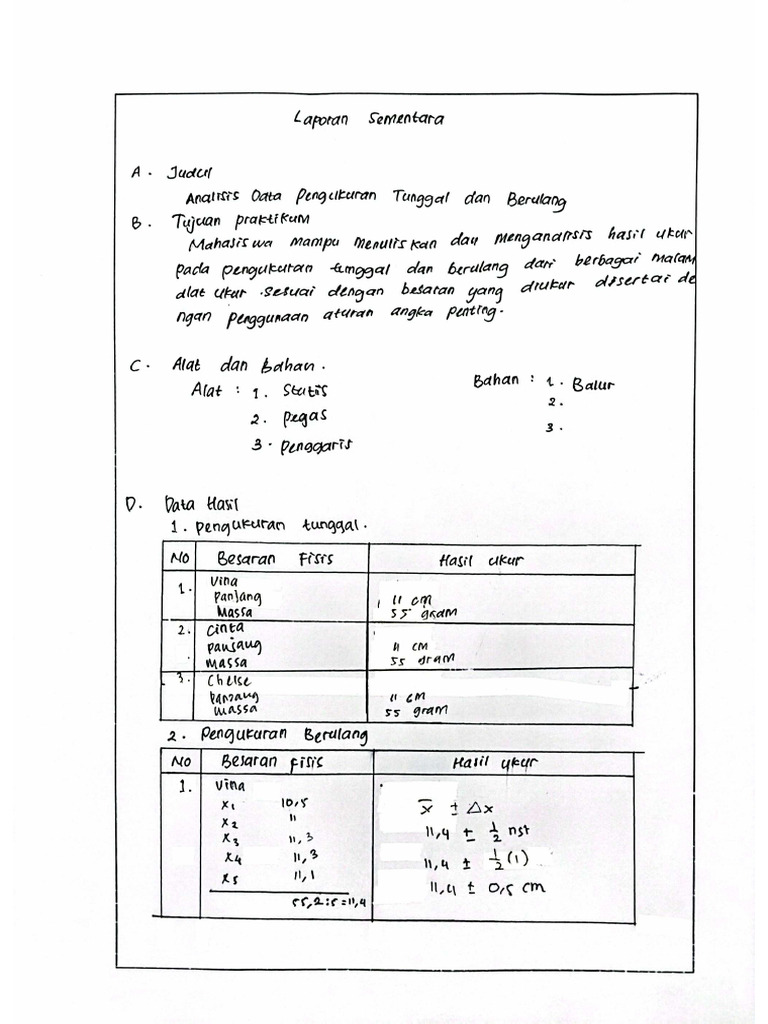 Laporan Sementara
A. Judul
Analisis Data Pengukuran Tunggal dan Berulang
B. Tujuan praktikum
Mahasiswa mampu menuliskan dan menganalisis hasil ukur
pada pengukuran tunggal dan berulang dari berbagai malam
alat ukur sesuai dengan besaran yang diukur disertai de
ngan penggunaan aturan angka penting.
C. Alat dan Bahan.
Alat : 1. Statis
2. pegas
3. penggaris
Bahan : 1. Balur
2.
3.
D. Data Hasil
1. pengukuran tunggal.
NO Besaran Fisis Hasil ukur
1. Vina
panjang 11 cm
Massa 55 gram
2. Cinta
panjang 11 cm
massa 55 gram
3. Chelse
panjang 11 cm
massa 55 gram
2. Pengukuran Berulang
NO Besaran fisis Hasil ukur
1. Vina
x1 10,5
x2 11
x3 11,3
x4 11,3
x5 11,1
55,2 : 5 = 11,4
x̄ ± Δx
11,4 ± 1/2 nst
11,4 ± 1/2 (1)
11,4 ± 0,5 cm